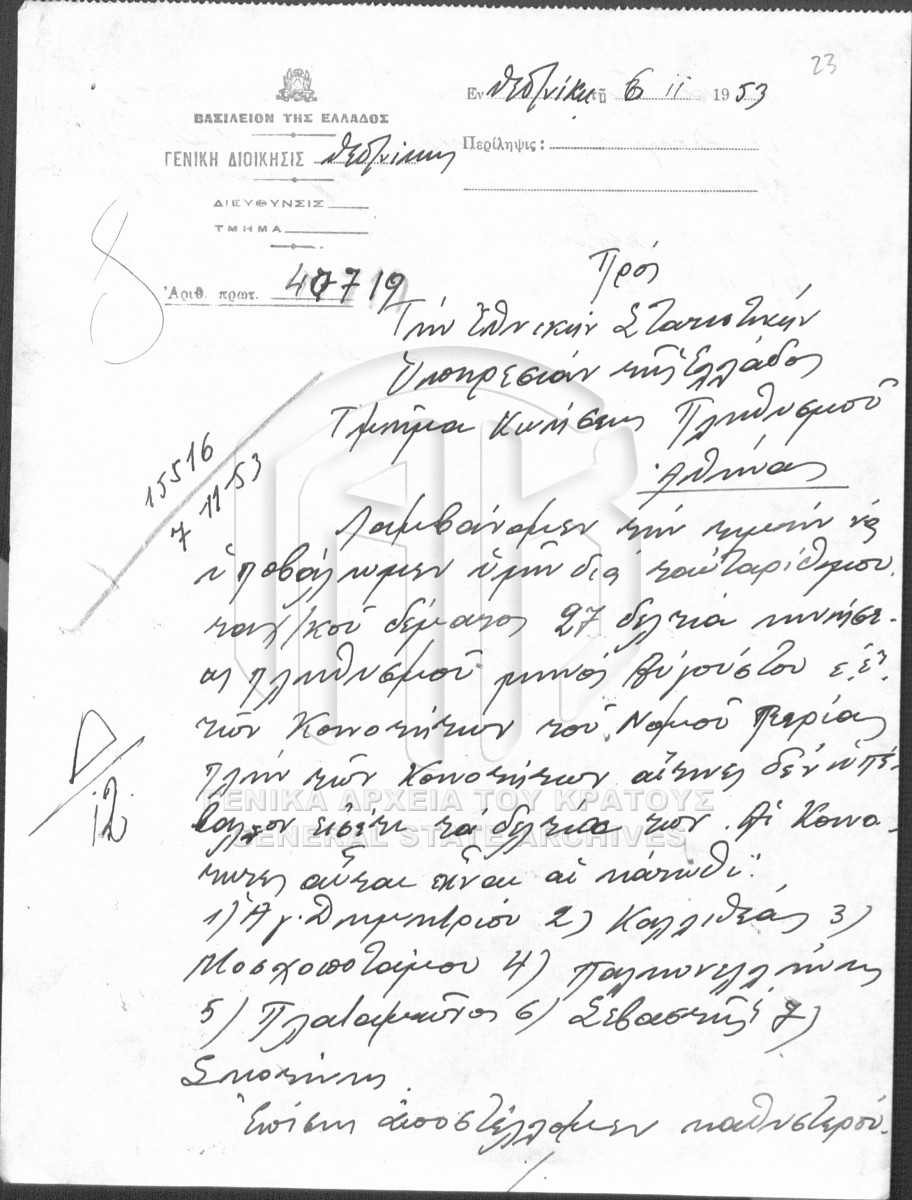 23
Εν Θεσ/νίκη τῇ 6 11 1953
ΒΑΣΙΛΕΙΟΝ ΤΗΣ ΕΛΛΑΔΟΣ
ΓΕΝΙΚΗ ΔΙΟΙΚΗΣΙΣ Θεσ/νίκης
Περίληψις :
ΔΙΕΥΘΥΝΣΙΣ
ΤΜΗΜΑ
Ἀριθ. πρωτ. 47719
8
Πρός
Τήν Ἐθνικήν Στατιστικήν
Ὑπηρεσίαν τῆς Ἑλλάδος
Τμῆμα Κινήσεως Πληθυσμοῦ
Ἀθήνας
15516
7 11 53
Λαμβάνομεν τήν τιμήν νά
ὑποβάλωμεν ὑμῖν διά ταὐταρίθμου
ταχ/κοῦ δέματος 27 δελτία κινήσε-
ως πληθυσμοῦ μηνός Αὐγούστου ἐ.ἔ.
τῶν Κοινοτήτων τοῦ Νομοῦ Πιερίας
πλήν τῶν Κοινοτήτων αἵτινες δέν ὑπέ-
βαλλον εἰσέτι τά δελτία των. Αἱ Κοινό-
τητες αὗται εἶναι αἱ κάτωθι:
1) Ἁγ. Δημητρίου 2) Καλλιθέας 3)
Μοσχοποτάμου 4) Παληονελλήνης
5) Πλαταμῶνος 6) Σεβαστῆς 7)
Σκοτίνης.
Ἐπίσης ἀποστέλλομεν καθυστερού-
12
ΓΕΝΙΚΑ ΑΡΧΕΙΑ ΤΟΥ ΚΡΑΤΟΥΣ
GENERAL STATE ARCHIVES